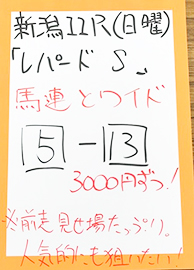 新潟11R(日曜)
「レパードS」
馬連とワイド
5-13
3000円ずつ!
※前走見せ場たっぷり。
人気的にも狙いたい!